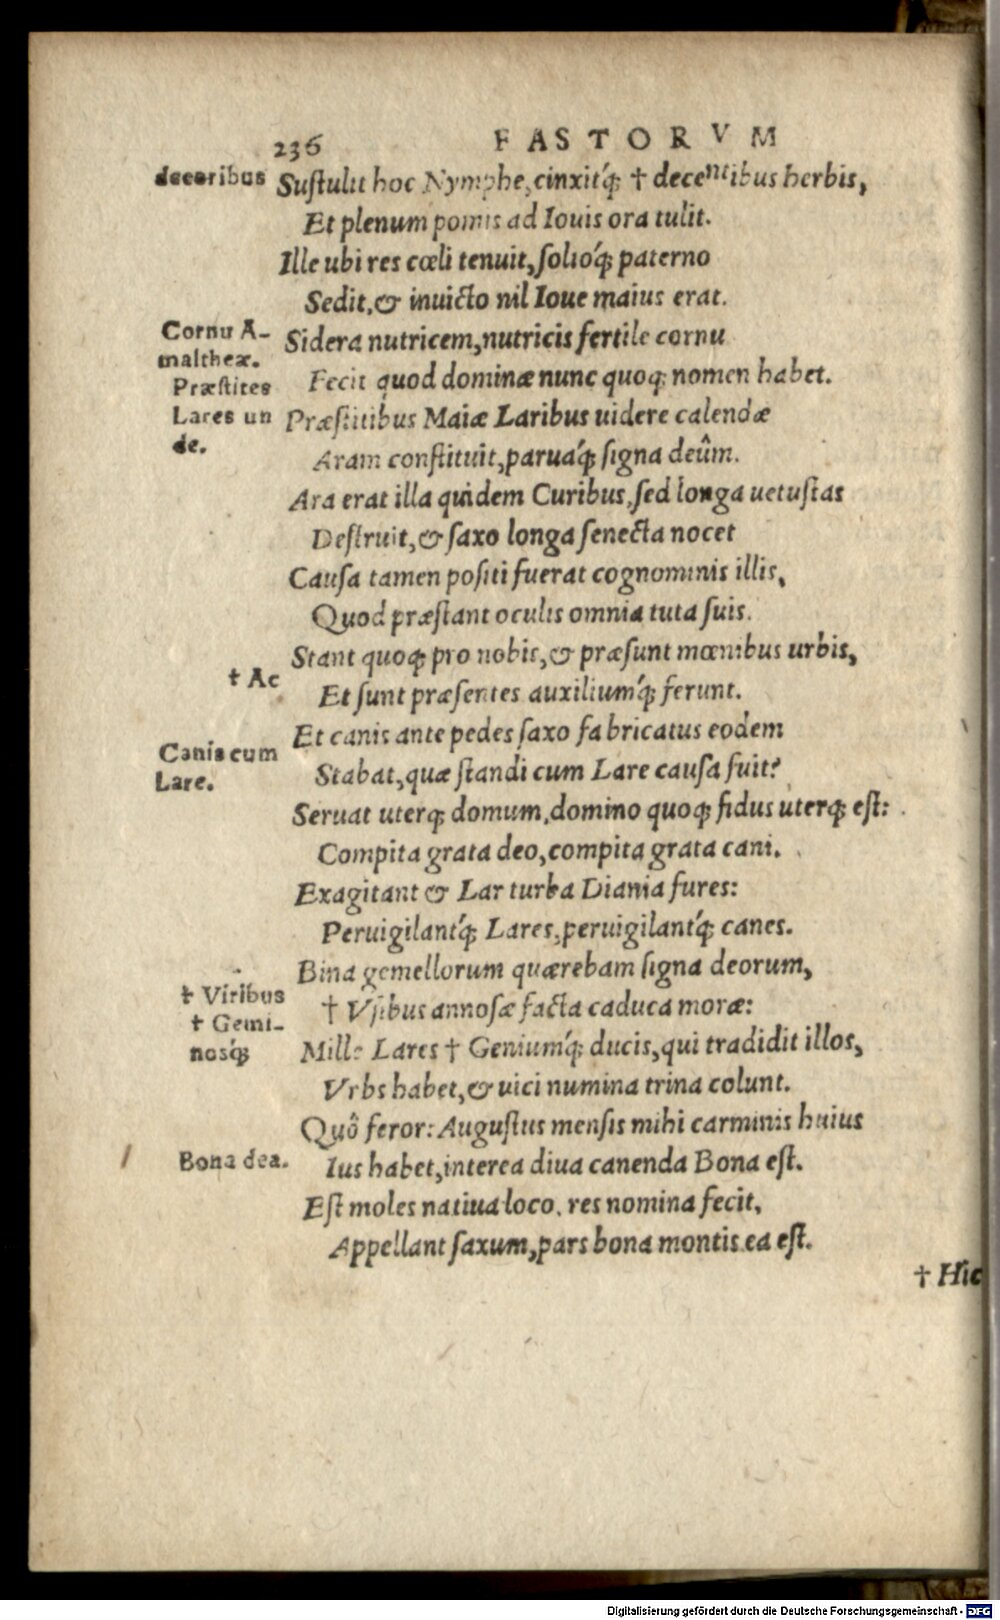 236 FASTORVM
Sustulit hoc Nymphe, cinxit'q; † decentibus herbis,
Et plenum pomis ad Iouis ora tulit.
Ille ubi res cœli tenuit, solio'q; paterno
Sedit, & inuicto nil Ioue maius erat.
Cornu A-
maltheæ.
Sidera nutricem, nutricis fertile cornu
Fecit quod dominæ nunc quoq; nomen habet.
Præstites
Lares un
de.
Præstitibus Maiæ Laribus uidere calendæ
Aram constituit, parua'q; signa deûm.
Ara erat illa quidem Curibus, sed longa uetustas
Destruit, & saxo longa senecta nocet
Causa tamen positi fuerat cognominis illis,
Quod præstant oculis omnia tuta suis.
Stant quoq; pro nobis, & præsunt mœnibus urbis,
† Ac
Et sunt præsentes auxilium'q; ferunt.
Et canis ante pedes saxo fabricatus eodem
Canis cum
Lare.
Stabat, quæ standi cum Lare causa fuit?
Seruat uterq; domum, domino quoq; fidus uterq; est:
Compita grata deo, compita grata cani.
Exagitant & Lar turba Diania fures:
Peruigilant'q; Lares, peruigilant'q; canes.
Bina gemellorum quærebam signa deorum,
† Viribus
† Vsibus annosæ facta caduca moræ:
† Gemi-
nos'q;
Mille Lares † Genium'q; ducis, qui tradidit illos,
Vrbs habet, & uici numina trina colunt.
Quô feror: Augustus mensis mihi carminis huius
Bona dea.
Ius habet, interea diua canenda Bona est.
Est moles natiua loco, res nomina fecit,
Appellant saxum, pars bona montis ea est.
† Hic
Digitalisierung gefördert durch die Deutsche Forschungsgemeinschaft - DFG